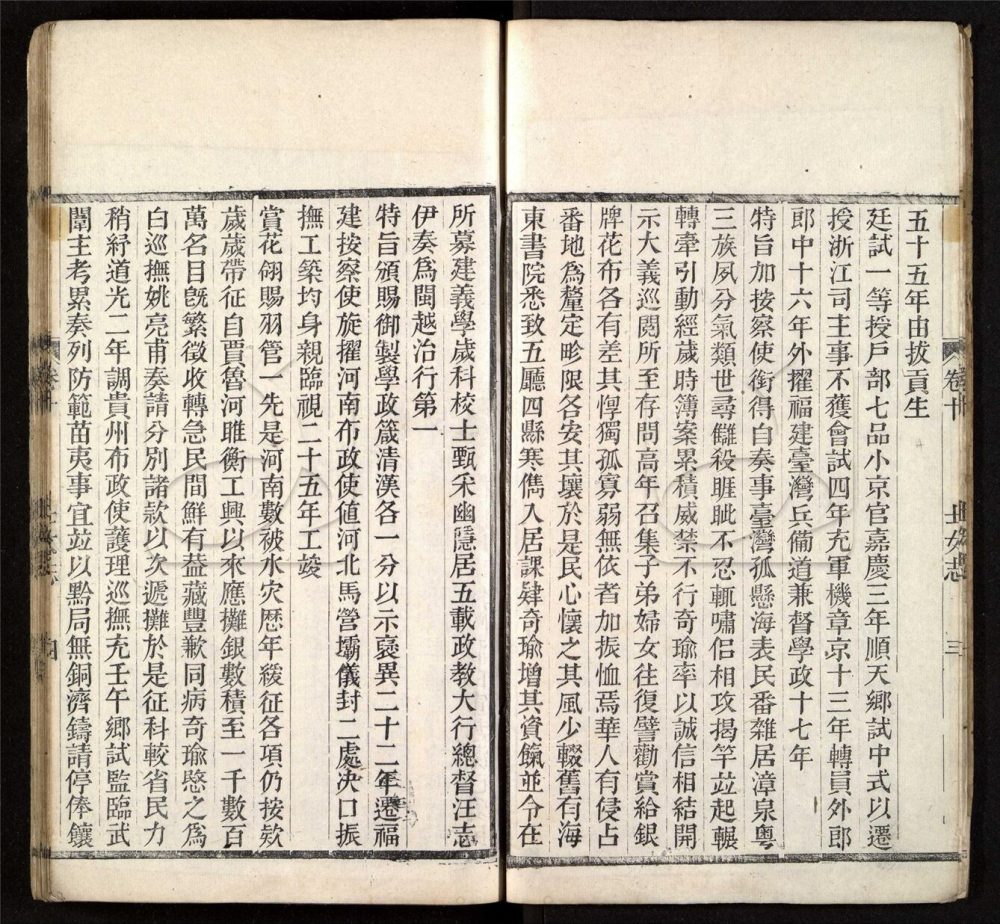 五十五年由拔貢生
廷試一等授戶部七品小京官嘉慶三年順天鄉試中式以遷
授浙江司主事不獲會試四年充軍機章京十三年轉員外郎
郎中十六年外擢福建臺灣兵備道兼督學政十七年
特旨加按察使銜得自奏事臺灣孤懸海表民番雜居漳泉粵
三族夙分氣類世尋讎殺睚眦不忍輒嘯侶相攻揭竿竝起輾
轉牽引動經歲時簿案累積威禁不行奇瑜率以誠信相結開
示大義巡閱所至存問高年召集子弟婦女往復譬勸賞給銀
牌花布各有差其惸獨孤寡弱無依者加振恤焉華人有侵占
番地為釐定畛限各安其壤於是民心懷之其風少輟舊有海
東書院悉致五廳四縣寒儁入居課肄奇瑜增其資餼並令在
卷十
士女志
三
所募建義學歲科校士甄采幽隱居五載政教大行總督汪志
伊奏為閩越治行第一
特旨頒賜御製學政箴清漢各一分以示褒異二十二年遷福
建按察使旋擢河南布政使值河北馬營壩儀封二處決口振
撫工築均身親臨視二十五年工竣
賞花翎賜羽管一先是河南數被水灾歷年緩征各項仍按欵
歲歲帶征自賈魯河睢衡工興以來應攤銀數積至一千數百
萬名目旣繁徵收轉急民間鮮有葢藏豐歉同病奇瑜愍之為
白巡撫姚亮甫奏請分別諸款以次遞攤於是征科較省民力
稍紓道光二年調貴州布政使護理巡撫充壬午鄉試監臨武
闈主考累奏列防範苗夷事宜竝以黔局無銅濟鑄請停俸鑲